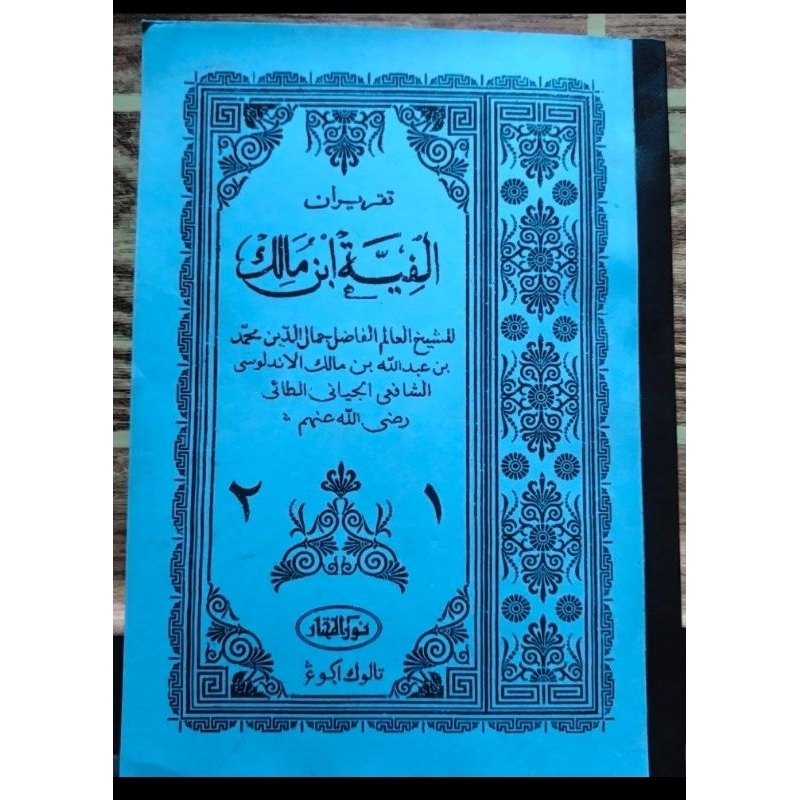 تقريران
الْفِيَّة ابْن مَالِك
للشيخ العالم الفاضل جمال الدين محمّد
بن عبد الله بن مالك الاندلوسى
الشافعى الجيانى الطائى
رضى الله عنهم
١ ٢
نور النهار
تالوك اكوڠ